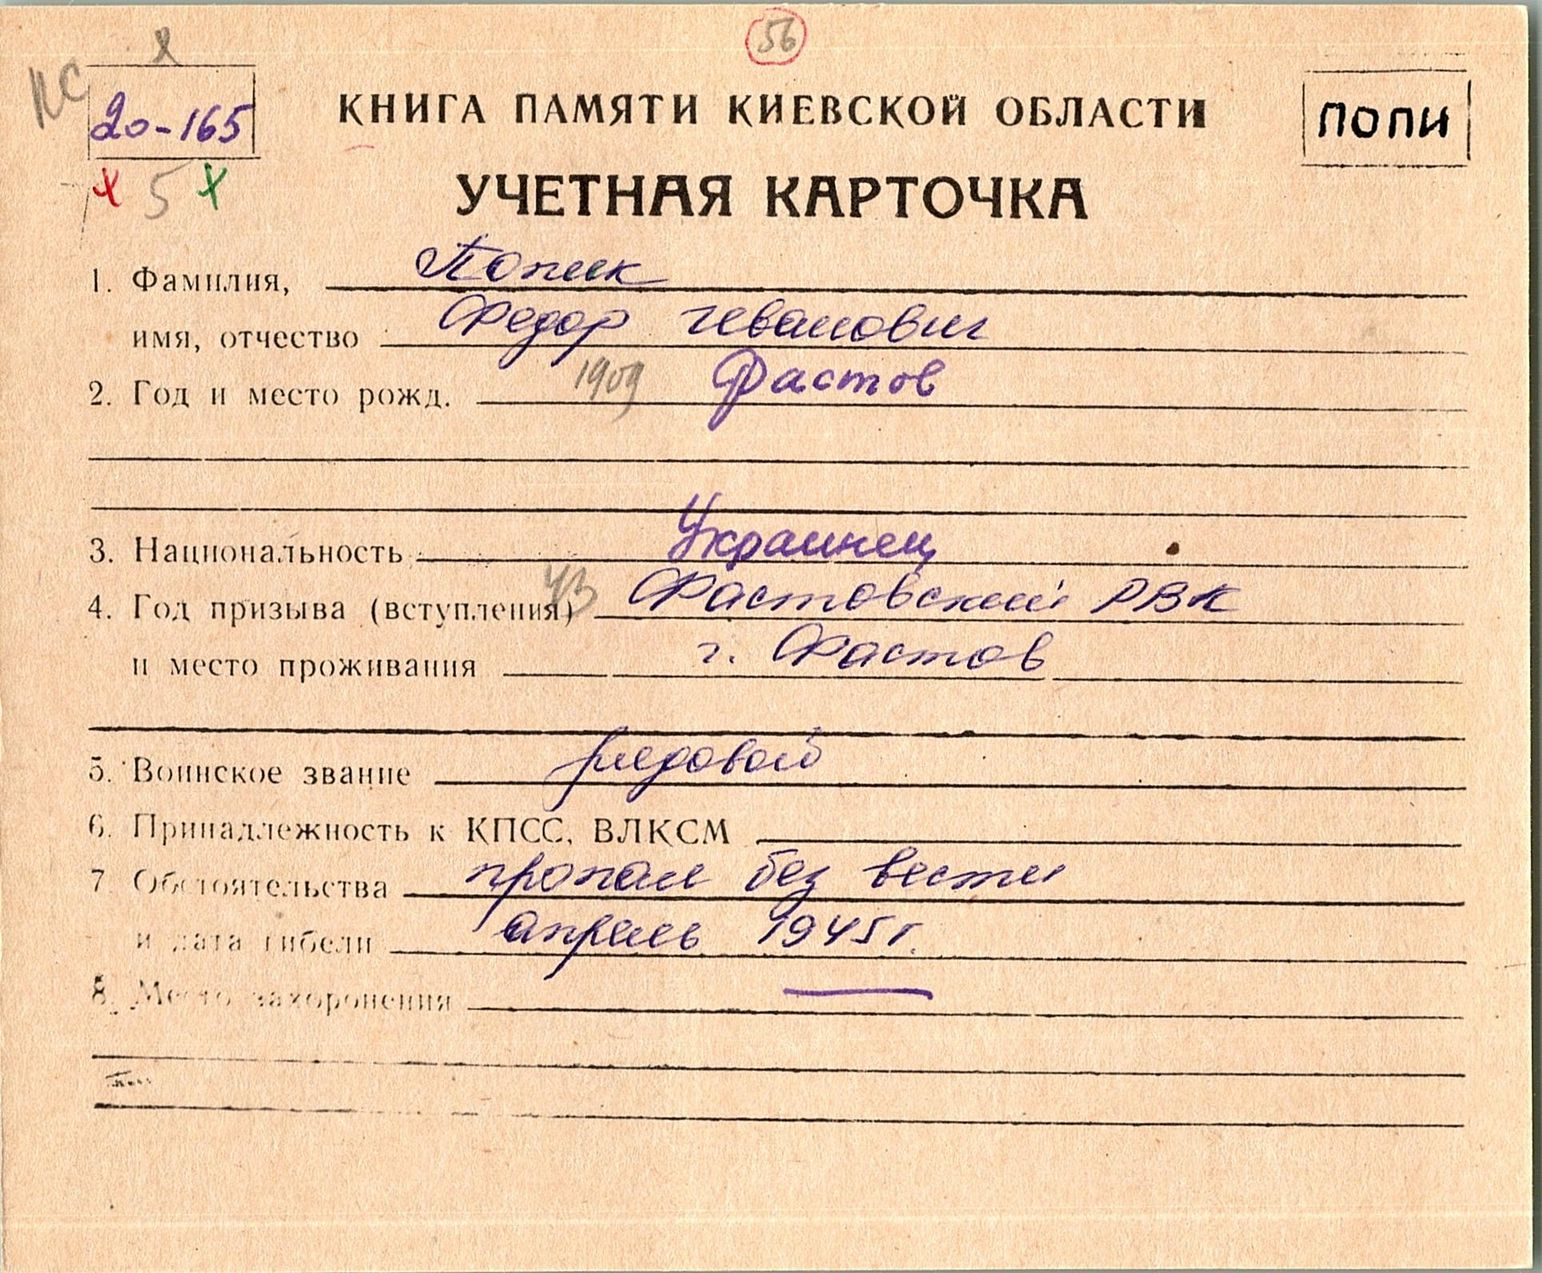 56
КС
20-165
КНИГА ПАМЯТИ КИЕВСКОЙ ОБЛАСТИ
ПОПИ
5
УЧЕТНАЯ КАРТОЧКА
1. Фамилия, Попик
имя, отчество Федор Иванович
2. Год и место рожд. 1909 Фастов
3. Национальность Украинец
4. Год призыва (вступления) 43 Фастовский РВК
и место проживания г. Фастов
5. Воинское звание рядовой
6. Принадлежность к КПСС, ВЛКСМ
7 Обстоятельства пропал без вести
и дата гибели апрель 1945 г.
8. Место захоронения —